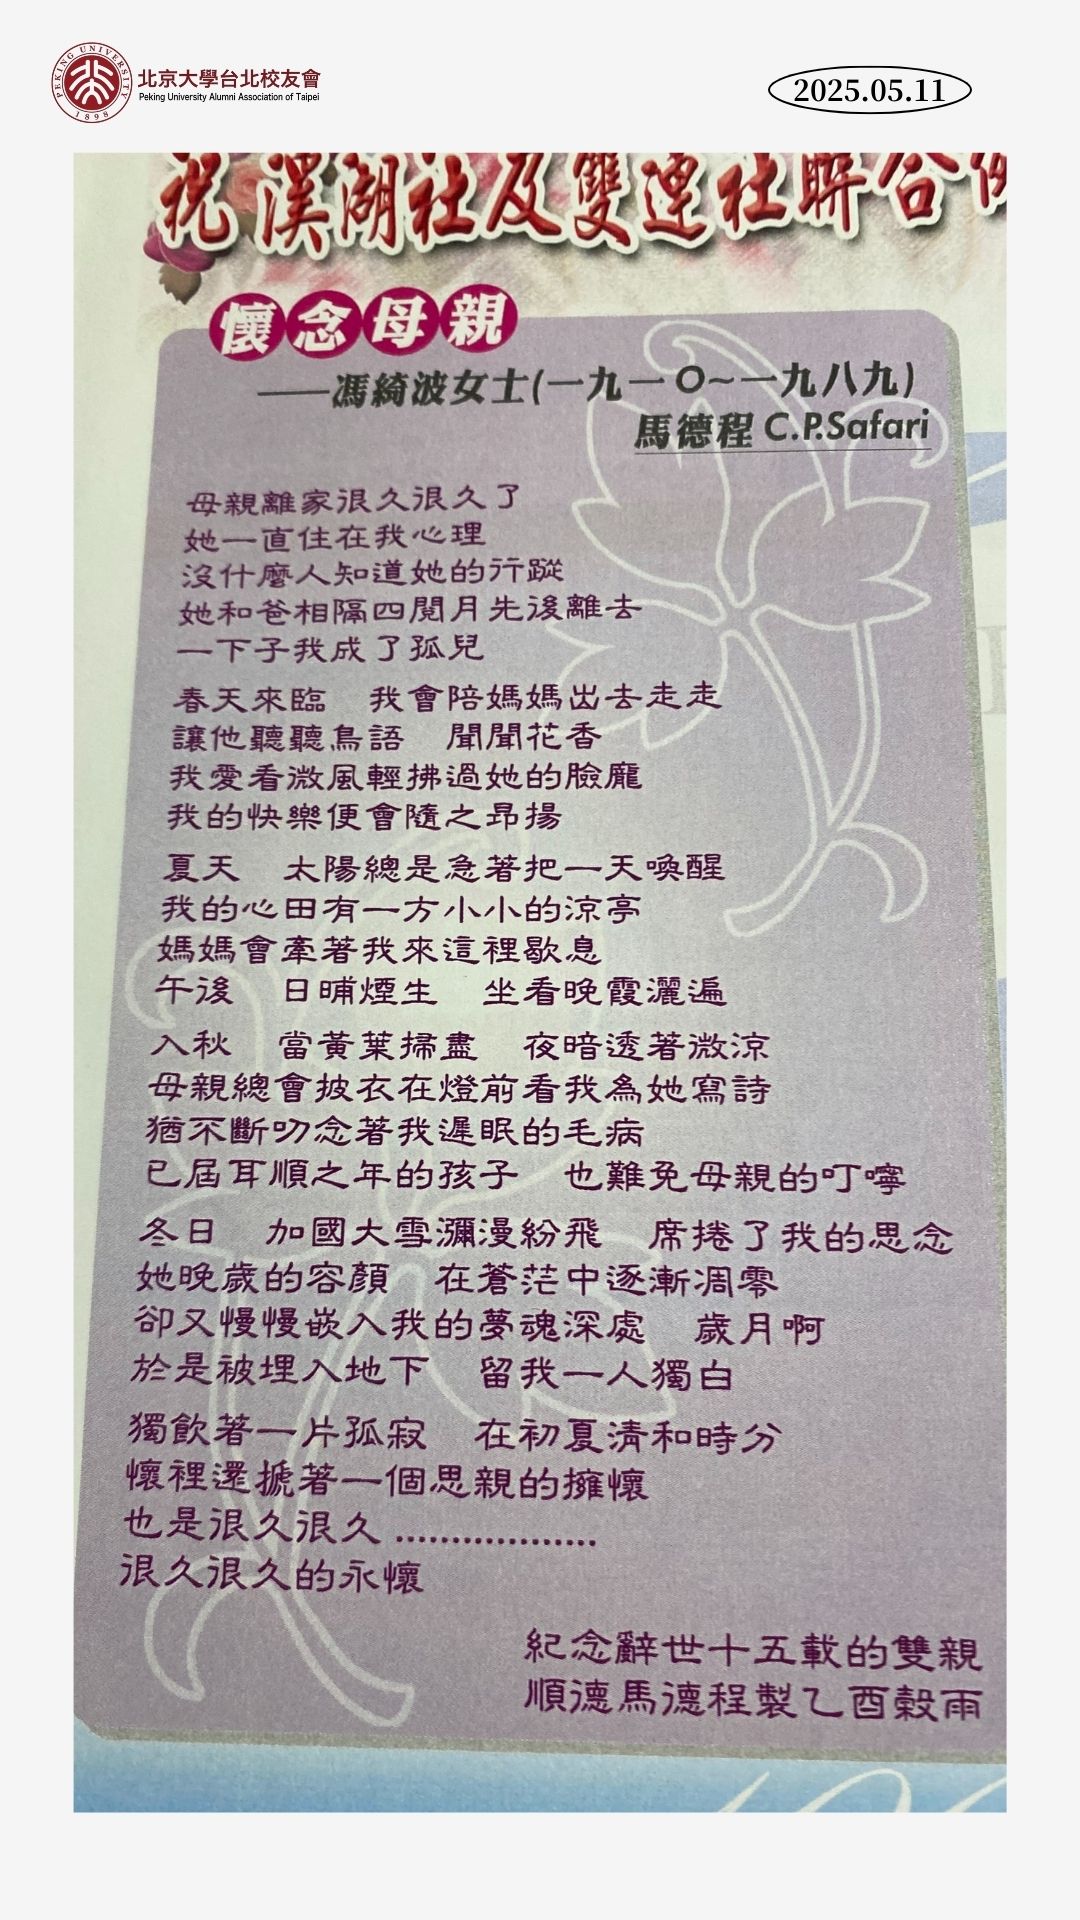 北京大學台北校友會
Peking University Alumni Association of Taipei
PEKING UNIVERSITY
1898
2025.05.11
祝漢湖社及雙連社聯合
懷念母親
——馮綺波女士(一九一O~一九八九)
馬德程 C.P.Safari
母親離家很久很久了
她一直住在我心理
沒什麼人知道她的行蹤
她和爸相隔四閱月先後離去
一下子我成了孤兒
春天來臨　我會陪媽媽出去走走
讓他聽聽鳥語　聞聞花香
我愛看微風輕拂過她的臉龐
我的快樂便會隨之昂揚
夏天　太陽總是急著把一天喚醒
我的心田有一方小小的涼亭
媽媽會牽著我來這裡歇息
午後　日晡煙生　坐看晚霞灑遍
入秋　當黃葉掃盡　夜暗透著微涼
母親總會披衣在燈前看我為她寫詩
猶不斷叨念著我遲眠的毛病
已屆耳順之年的孩子　也難免母親的叮嚀
冬日　加國大雪瀰漫紛飛　席捲了我的思念
她晚歲的容顏　在蒼茫中逐漸凋零
卻又慢慢嵌入我的夢魂深處　歲月啊
於是被埋入地下　留我一人獨白
獨飲著一片孤寂　在初夏清和時分
懷裡還搋著一個思親的擁懷
也是很久很久..................
很久很久的永懷
紀念辭世十五載的雙親
順德馬德程製乙酉穀雨